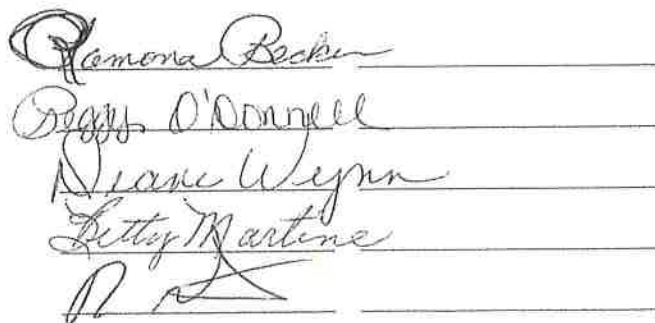 Ramona Becker
Peggy O'Donnell
Diane Wynn
Betty Martine